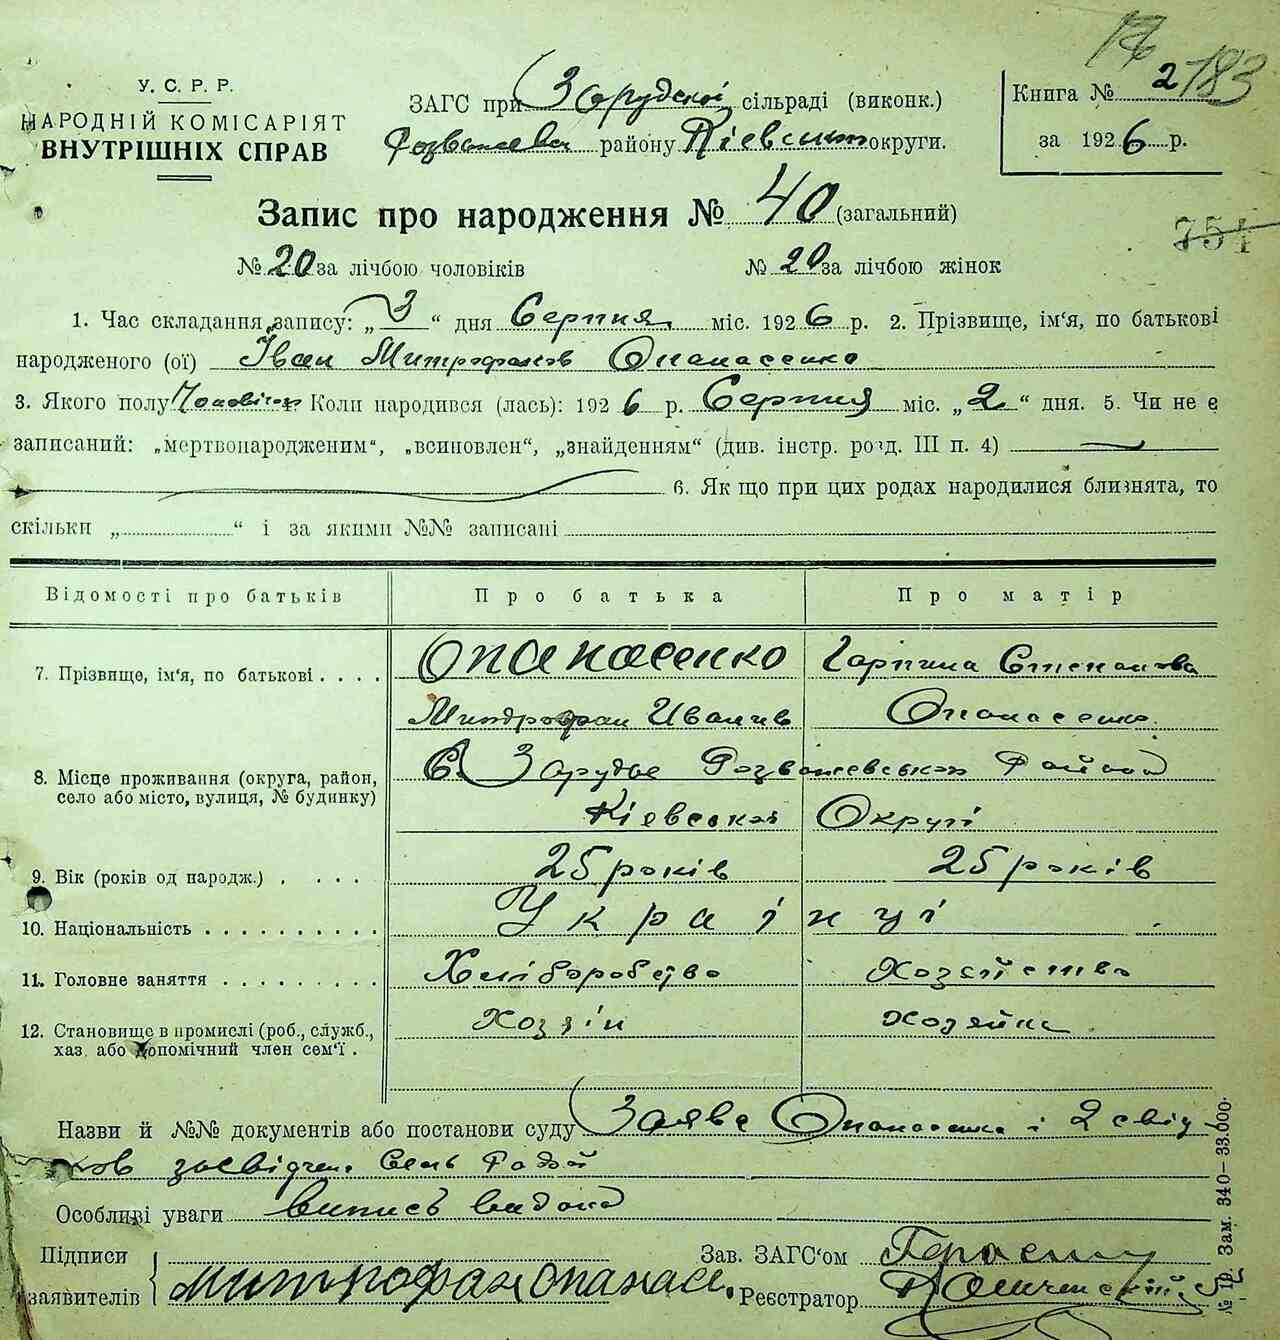 У. С. Р. Р.
НАРОДНІЙ КОМІСАРІЯТ
ВНУТРІШНІХ СПРАВ
ЗАГС при Зарудской сільраді (виконк.)
району округи.
Книга № 2
183
за 1926 р.
Запис про народження № 40 (загальний)
751
№ 20 за лічбою чоловіків № 20 за лічбою жінок
1. Час складання запису: „3“ дня Серпня міс. 1926 р. 2. Прізвище, ім'я, по батькові
народженого (ої) Іван Митрофанов Опанасенко
3. Якого полу Коли народився (лась): 1926 р. Серпня міс. „2“ дня. 5. Чи не є
записаний: „мертвонародженим“, „всиновлен“, „знайденням“ (див. інстр. розд. III п. 4)
6. Як що при цих родах народилися близнята, то
скільки „ “ і за якими №№ записані
Відомості про батьків Про батька Про матір
7. Прізвище, ім'я, по батькові . . . . Опанасенко Гарпина Степанова
Митрофан Иванив Опанасенко
8. Місце проживання (округа, район,
село або місто, вулиця, № будинку)
С. Зарудье Розважевской Района
Кіевской Округі
9. Вік (років од народж.) . . . . 25 років 25 років
10. Національність . . . . . . . . . . Українці
11. Головне заняття . . . . . . . . . Хліборобство Хозяйство
12. Становище в промислі (роб., служб.,
хаз. або допомічний член сем'ї .
Хозяін Хозяйка
Назви й №№ документів або постанови суду Заява Опанасенка і 2 свід
ков засвідчен. Радой
Особливі уваги Випись видана
Підписи
заявителів Митрофан Опанас.
Зав. ЗАГС'ом
Реєстратор
Зам. 340—33.000.